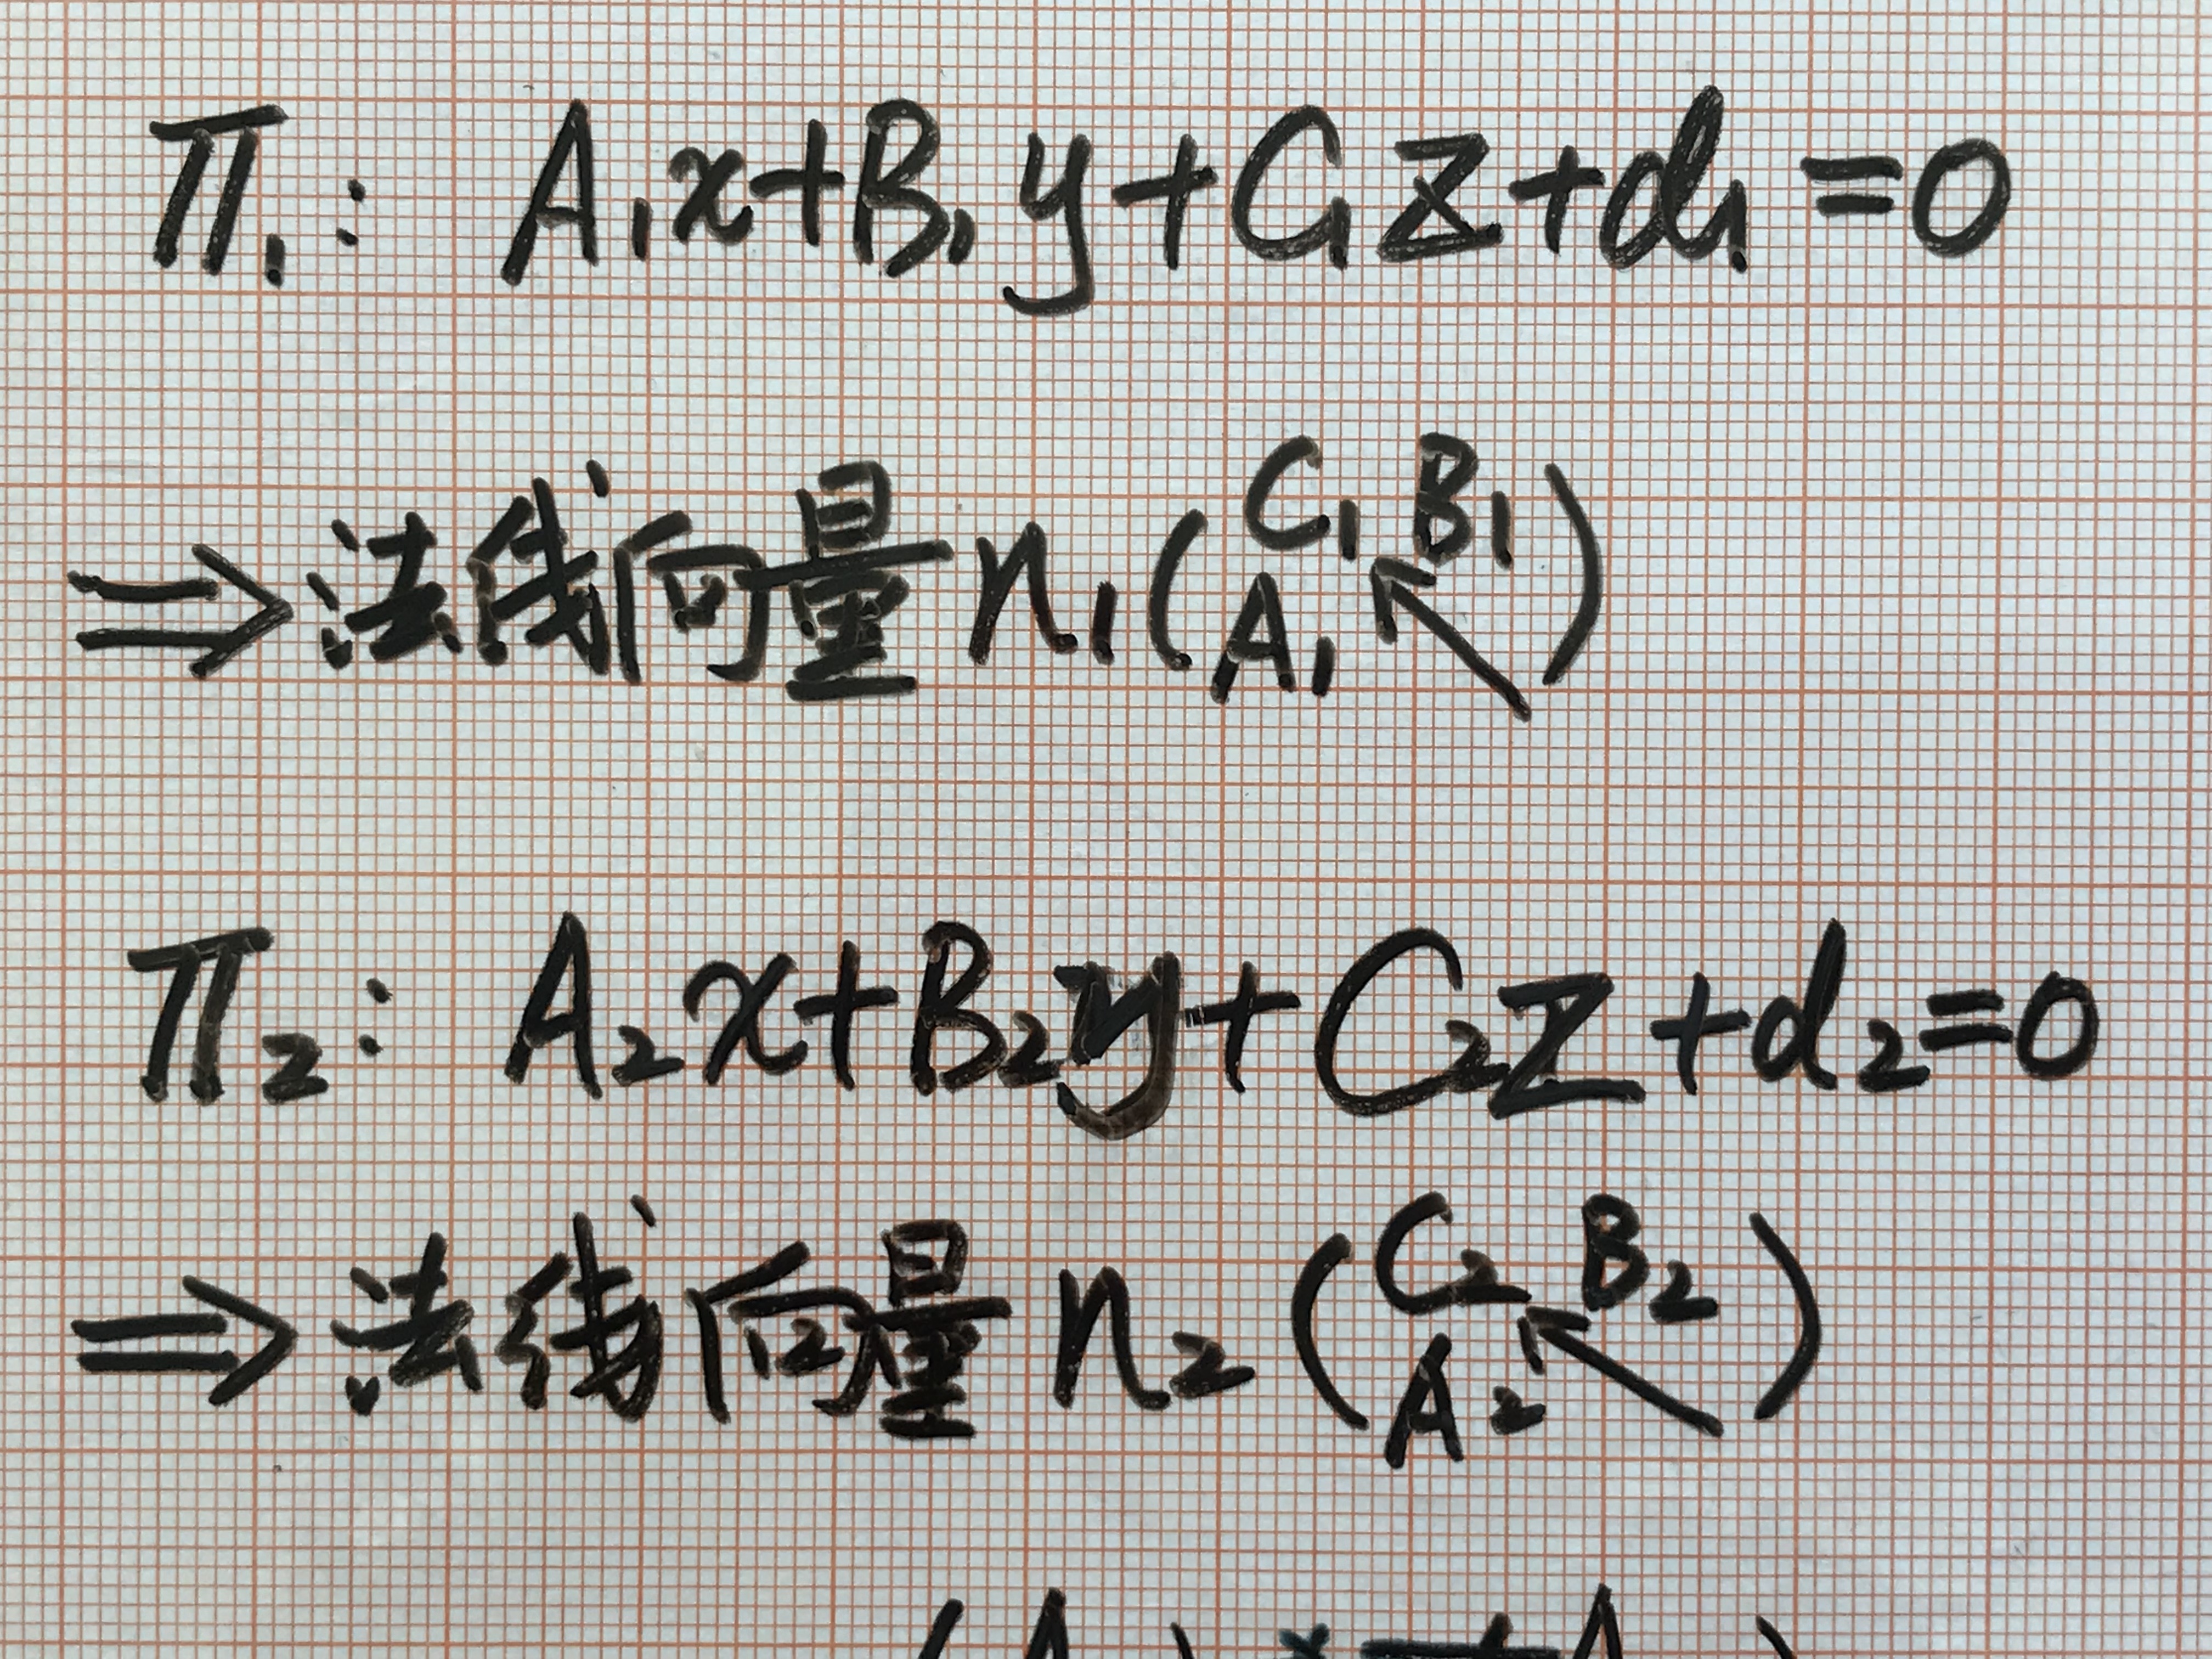 Π₁: A₁x+B₁y+C₁z+d₁=0
⇒法线向量 n₁(C₁ B₁
A₁ ↖)
Π₂: A₂x+B₂y+C₂z+d₂=0
⇒法线向量 n₂(C₂ B₂
A₂ ↖)